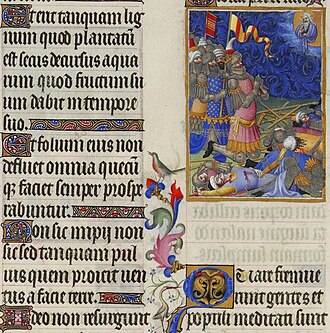 Et erit tanquam lig
num quod plantatū
est secus decursus aqua
rum quod fructum su
um dabit in tempore
suo.
Et folium eius non
defluet omnia quecū
qȝ faciet semper prospe
rabuntur.
Non sic impii non
sic sed tanquam pul
uis quem proicit uen
tus a facie terre.
Ideo non resurgunt
Quare fremue
runt gentes et
populi meditati sunt